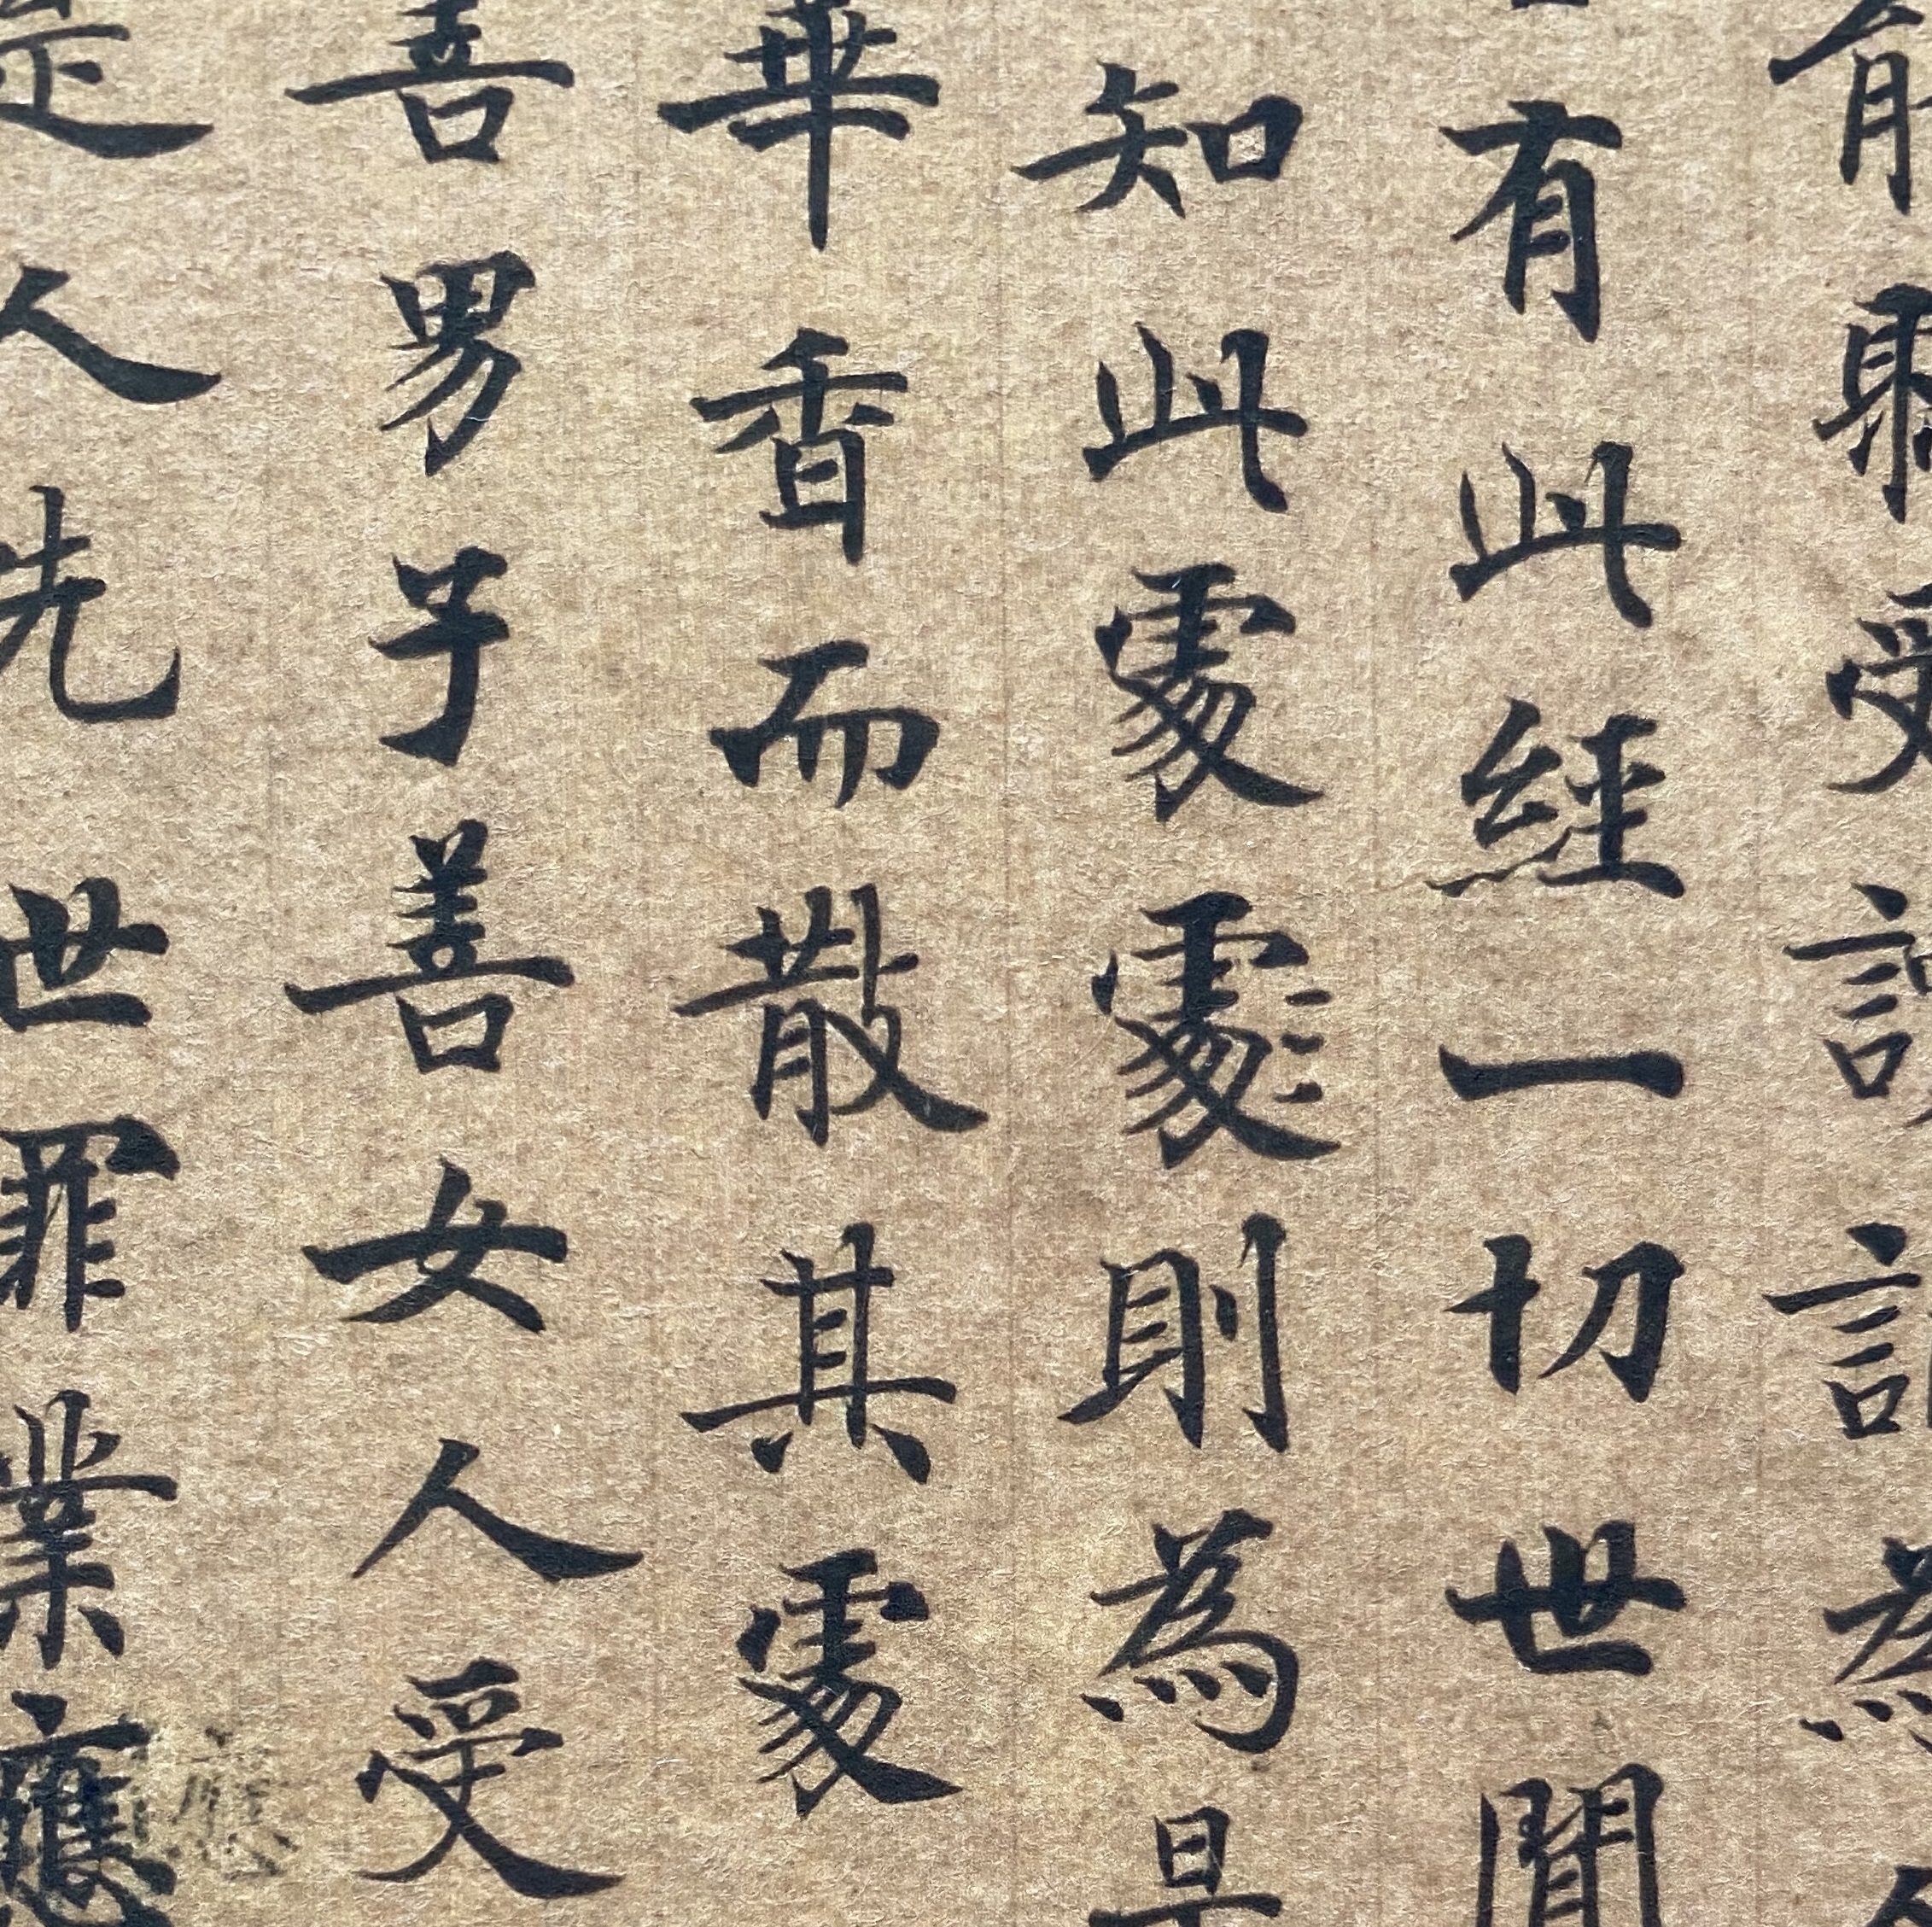 能聽受讀誦為人
有此經一切世間
知此處處則為是
華香而散其處
善男子善女人受
是人先世罪業應
應